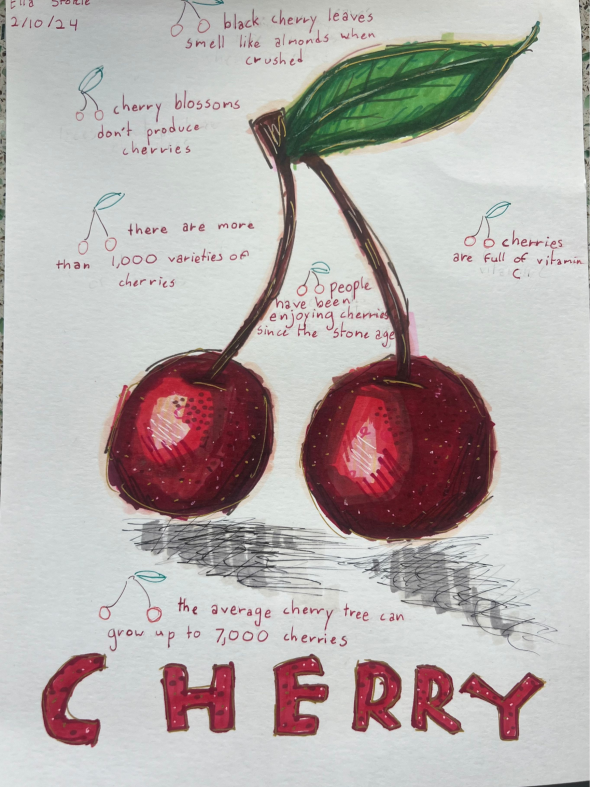 2/10/24
black cherry leaves
smell like almonds when
crushed
cherry blossoms
don't produce
cherries
there are more
than 1,000 varieties of
cherries
cherries
are full of vitamin
C.
people
have been
enjoying cherries
since the stone age
the average cherry tree can
grow up to 7,000 cherries
CHERRY